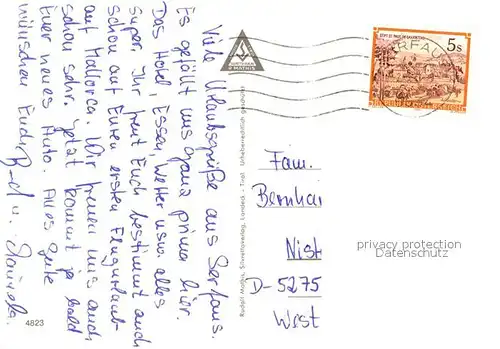 Viele Urlaubsgrüße aus Serfaus.
Es gefällt uns ganz prima hier.
Das Hotel, Essen, Wetter usw. alles
super. Ihr freut Euch bestimmt auch
schon auf Euren ersten Flugurlaub
auf Mallorca. Wir freuen uns auch
schon sehr. Jetzt kommt ja bald
Euer neues Auto. Alles gute
wünschen Euch
u. Daniela.
4823
Rudolf Mathis, Silvrettaverlag, Landeck - Tirol Urheberrechtlich geschützt
MATHIS
5s
ERFAU
Fam.
Bernhar
Nist
D-5275
West
privacy protection
Datenschutz